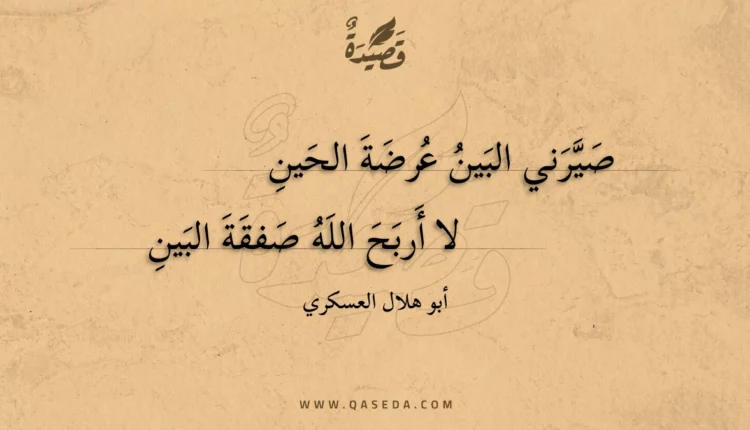 قَصِيدَةٌ
صَيَّرَني البَينُ عُرضَةَ الحَينِ
لا أَربَحَ اللَهُ صَفقَةَ البَينِ
أبو هلال العسكري
WWW.QASEDA.COM